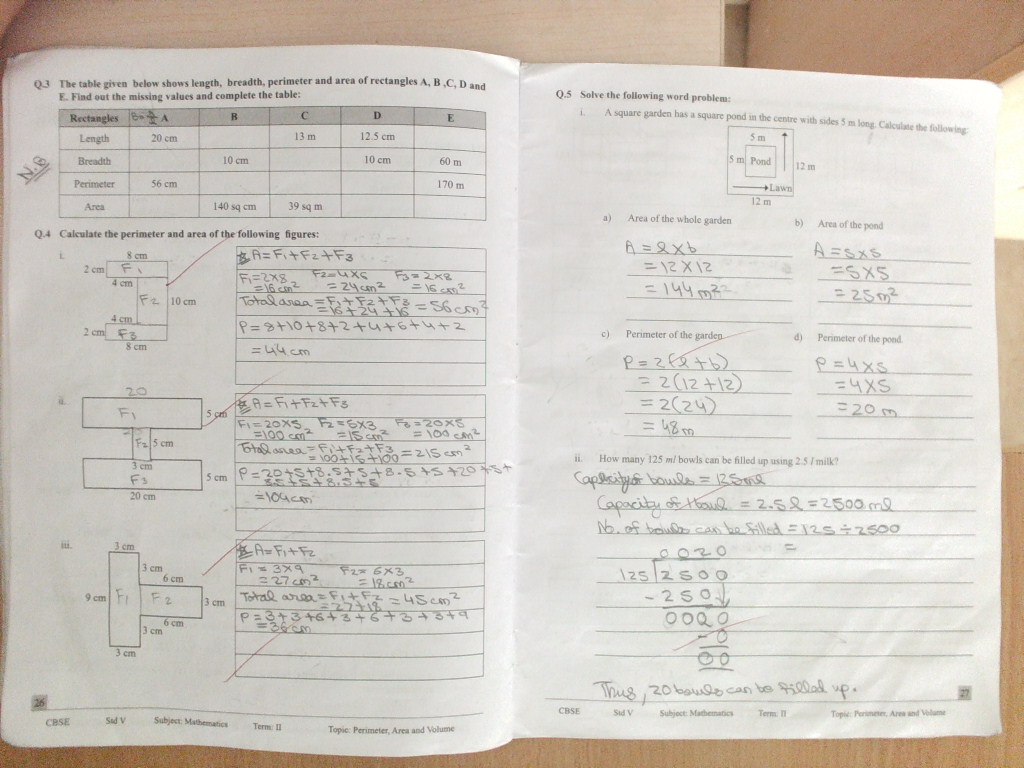 Q.3 The table given below shows length, breadth, perimeter and area of rectangles A, B ,C, D and
E. Find out the missing values and complete the table:
Rectangles A B C D E
Length 20 cm 13 m 12.5 cm
Breadth 10 cm 10 cm 60 m
Perimeter 56 cm 170 m
Area 140 sq cm 39 sq m
N.B
Q.4 Calculate the perimeter and area of the following figures:
i.
8 cm
2 cm F1
4 cm
F2 10 cm
4 cm
2 cm F3
8 cm
A=F1+F2+F3
F1=2×8 F2=4×6 F3=2×8
=16cm² =24cm² =16cm²
Total area = F1+F2+F3 = 56cm²
=16+24+16
P=8+10+8+2+4+6+4+2
=44cm
ii.
20
F1 5 cm
F2 5 cm
3 cm
F3 5 cm
20 cm
A=F1+F2+F3
F1=20×5 F2=5×3 F3=20×5
=100cm² =15cm² =100cm²
Total area=F1+F2+F3 =215cm²
=100+15+100
P=20+5+8.5+5+8.5+5+20+5+
8.5+5+8.5+5
=104cm
iii.
3 cm
3 cm
6 cm
9 cm F1 F2 3 cm
6 cm
3 cm
3 cm
A=F1+F2
F1=3×9 F2=6×3
=27cm² =18cm²
Total area=F1+F2 =45cm²
=27+18
P=3+3+6+3+6+3+3+9
=36cm
26
CBSE Std V Subject: Mathematics Term: II Topic: Perimeter, Area and Volume
Q.5 Solve the following word problem:
i. A square garden has a square pond in the centre with sides 5 m long. Calculate the following:
5 m
5 m Pond 12 m
Lawn
12 m
a) Area of the whole garden
A=l×b
=12×12
=144m²
b) Area of the pond
A=5×5
=5×5
=25m²
c) Perimeter of the garden
P=2(l+b)
=2(12+12)
=2(24)
=48m
d) Perimeter of the pond.
P=4×5
=4×5
=20m
ii. How many 125 ml bowls can be filled up using 2.5 l milk?
of bowls = 125ml
Capacity of = 2.5l = 2500ml
No. of bowls can be filled = 125÷2500
=
0020
125 2500
-250
0020
-0
00
Thus, 20 bowls can be filled up.
27
CBSE Std V Subject: Mathematics Term: II Topic: Perimeter, Area and Volume